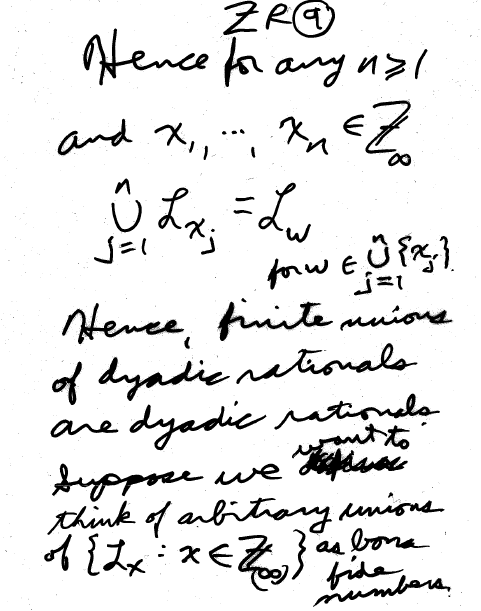 ZR⑨
Hence for any n ≥ 1
and x₁, ..., xₙ ∈ ℤ_∞
⋃ⁿ_{j=1} ℒ_{x_j} = ℒ_w
for w ∈ ⋃ⁿ_{j=1} {x_j}.
Hence, finite unions
of dyadic rationals
are dyadic rationals
want to
Suppose we
think of arbitrary unions
of {ℒ_x : x ∈ ℤ_(∞)} as bona
fide
numbers.